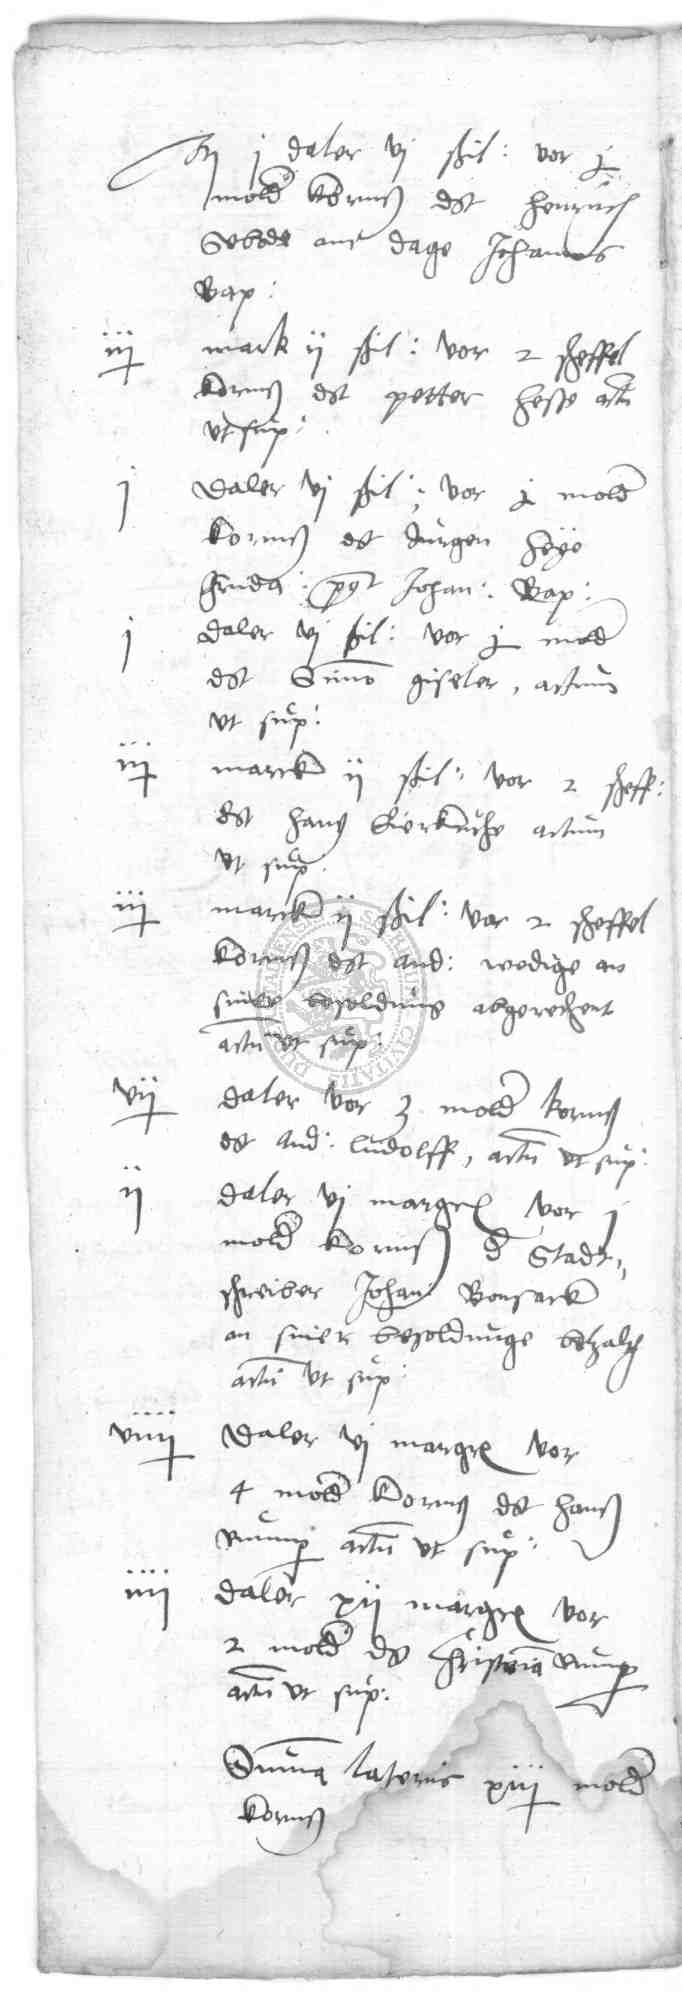 j daler vj ßil: vor j
mold korns dt Henrich
ame dage Johannes
Bap:
iij mark ij ßil: vor 2 scheffel
korns dt petter Hesse actu
ut sup:
j daler vj ßil: vor j mold
korns dt Jurgen Heye
Johan: Bap:
j daler vj ßil: vor j mold
dt Simo giseler, actum
ut sup:
iij marck ij ßil: vor 2 scheff:
dt Hans actum
ut sup:
iij marck ij ßil: vor 2 scheffel
korns dt And: wedige an
siner besoldung abgerechent
actu ut sup:
vij daler vor 3 mold korns
dt And: ludolff, actu ut sup:
ij daler vj margr vor j
mold korns d Stadt,
schreiber Johan Bonsack
an siner besoldunge betzalt
actu ut sup:
viiij daler vj margr vor
4 mold korns dt Hans
actu ut sup:
iiij daler xij margr vor
2 mold dt
actu ut sup:
Summa lateris xiij mold
korns